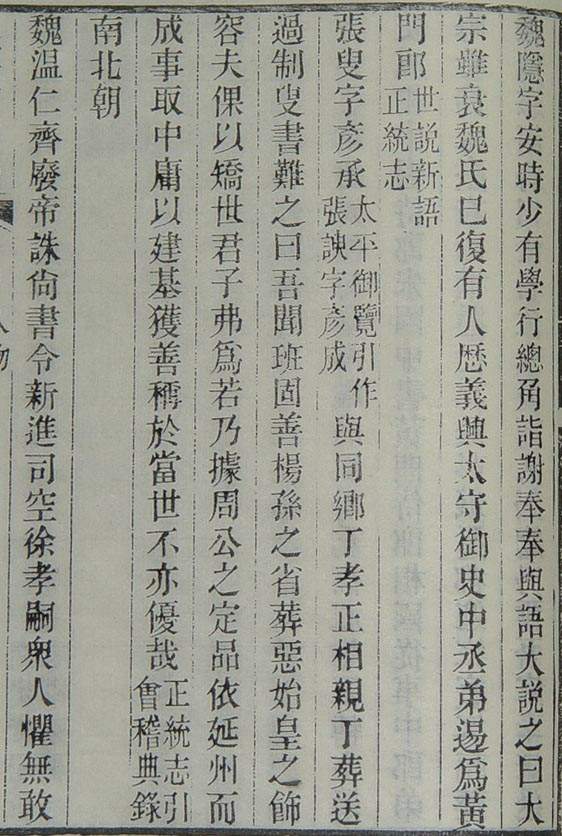 魏隱字安時少有學行總角詣謝奉奉與語大説之曰大
宗雖衰魏氏已復有人歷義興太守御史中丞弟逷爲黃
門郎世説新語
正統志
張叟字彥承太平御覽引作
張諛字彥成與同鄉丁孝正相親丁葬送
過制叟書難之曰吾聞班固善楊孫之省葬惡始皇之飾
容夫倮以矯世君子弗爲若乃據周公之定品依延州而
成事取中庸以建基獲善稱於當世不亦優哉正統志引
會稽典錄
南北朝
魏温仁齊廢帝誅尙書令新進司空徐孝嗣衆人懼無敢